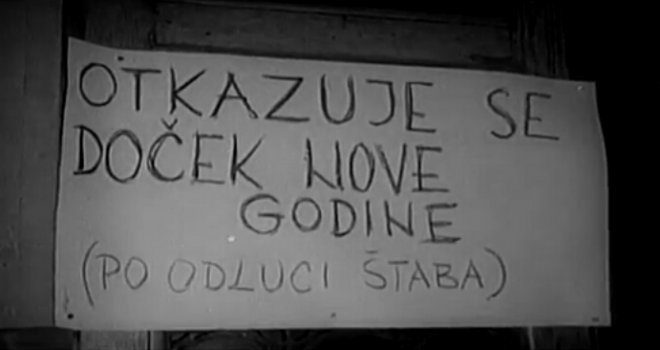 OTKAZUJE SE
DOČEK NOVE
GODINE
(PO ODLUCI ŠTABA)